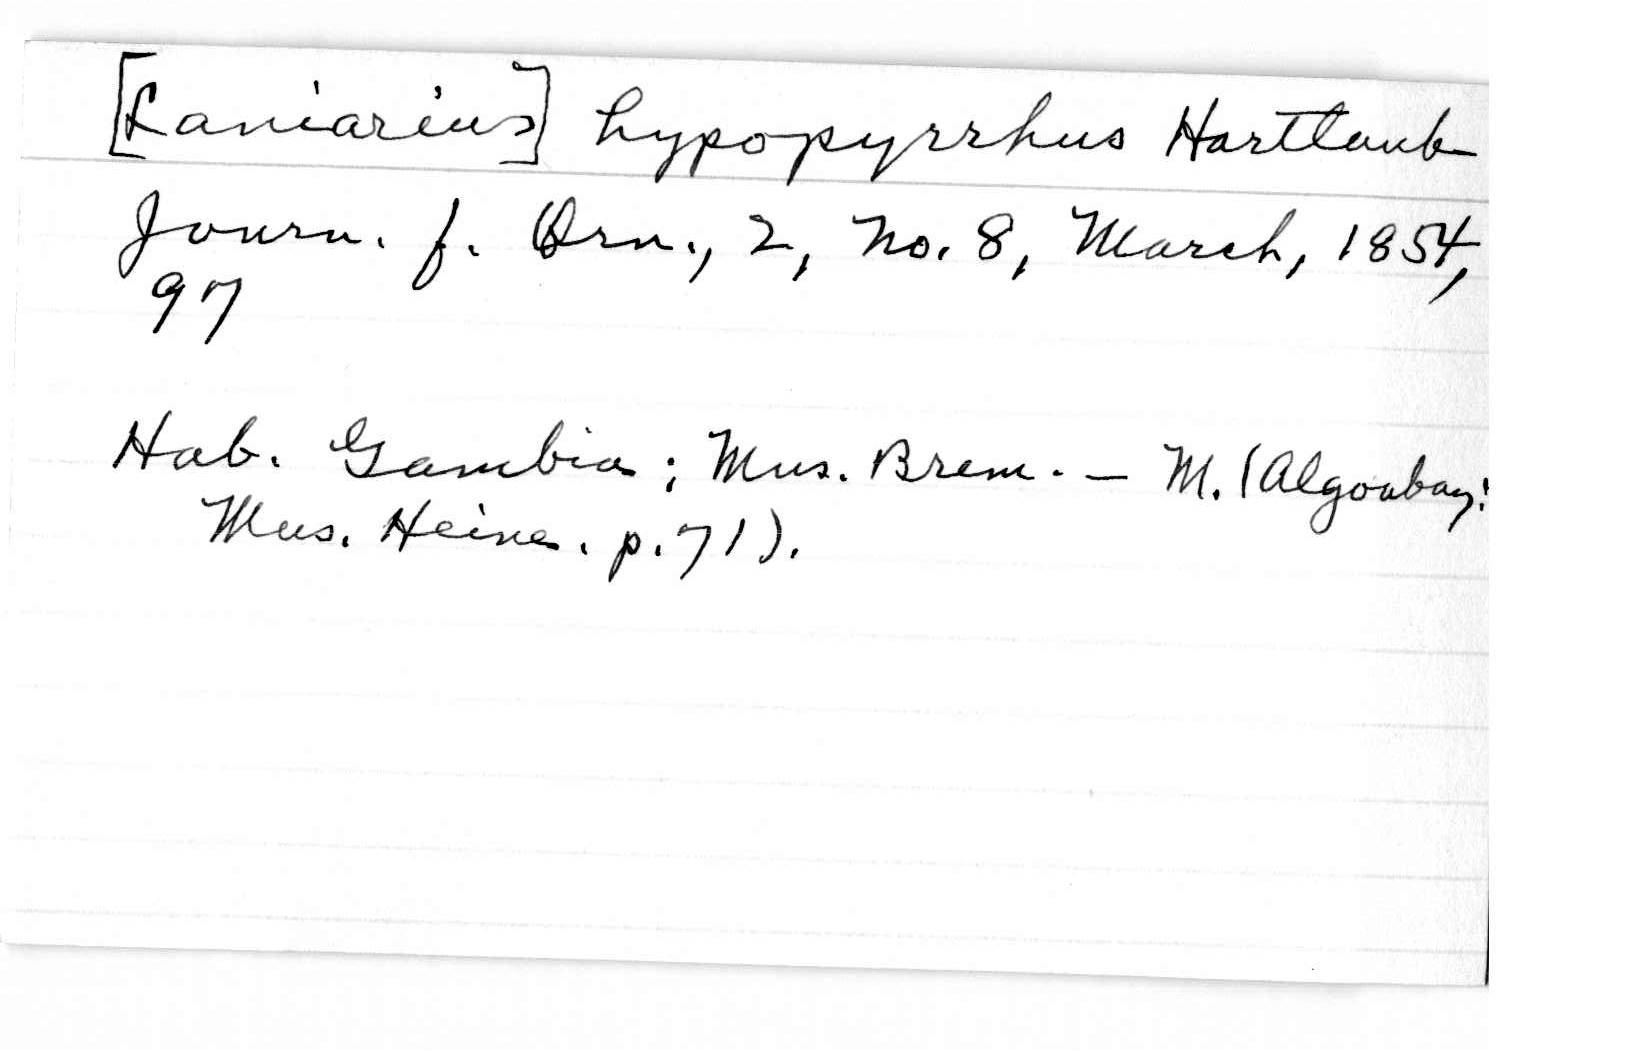 [Laniarius] hypopyrrhus Hartlaub
Journ. f. Orn., 2, no. 8, March, 1854,
97
Hab. Gambia; Mus. Brem. - M. (Algoabay:
Mus. Heine. p. 71).